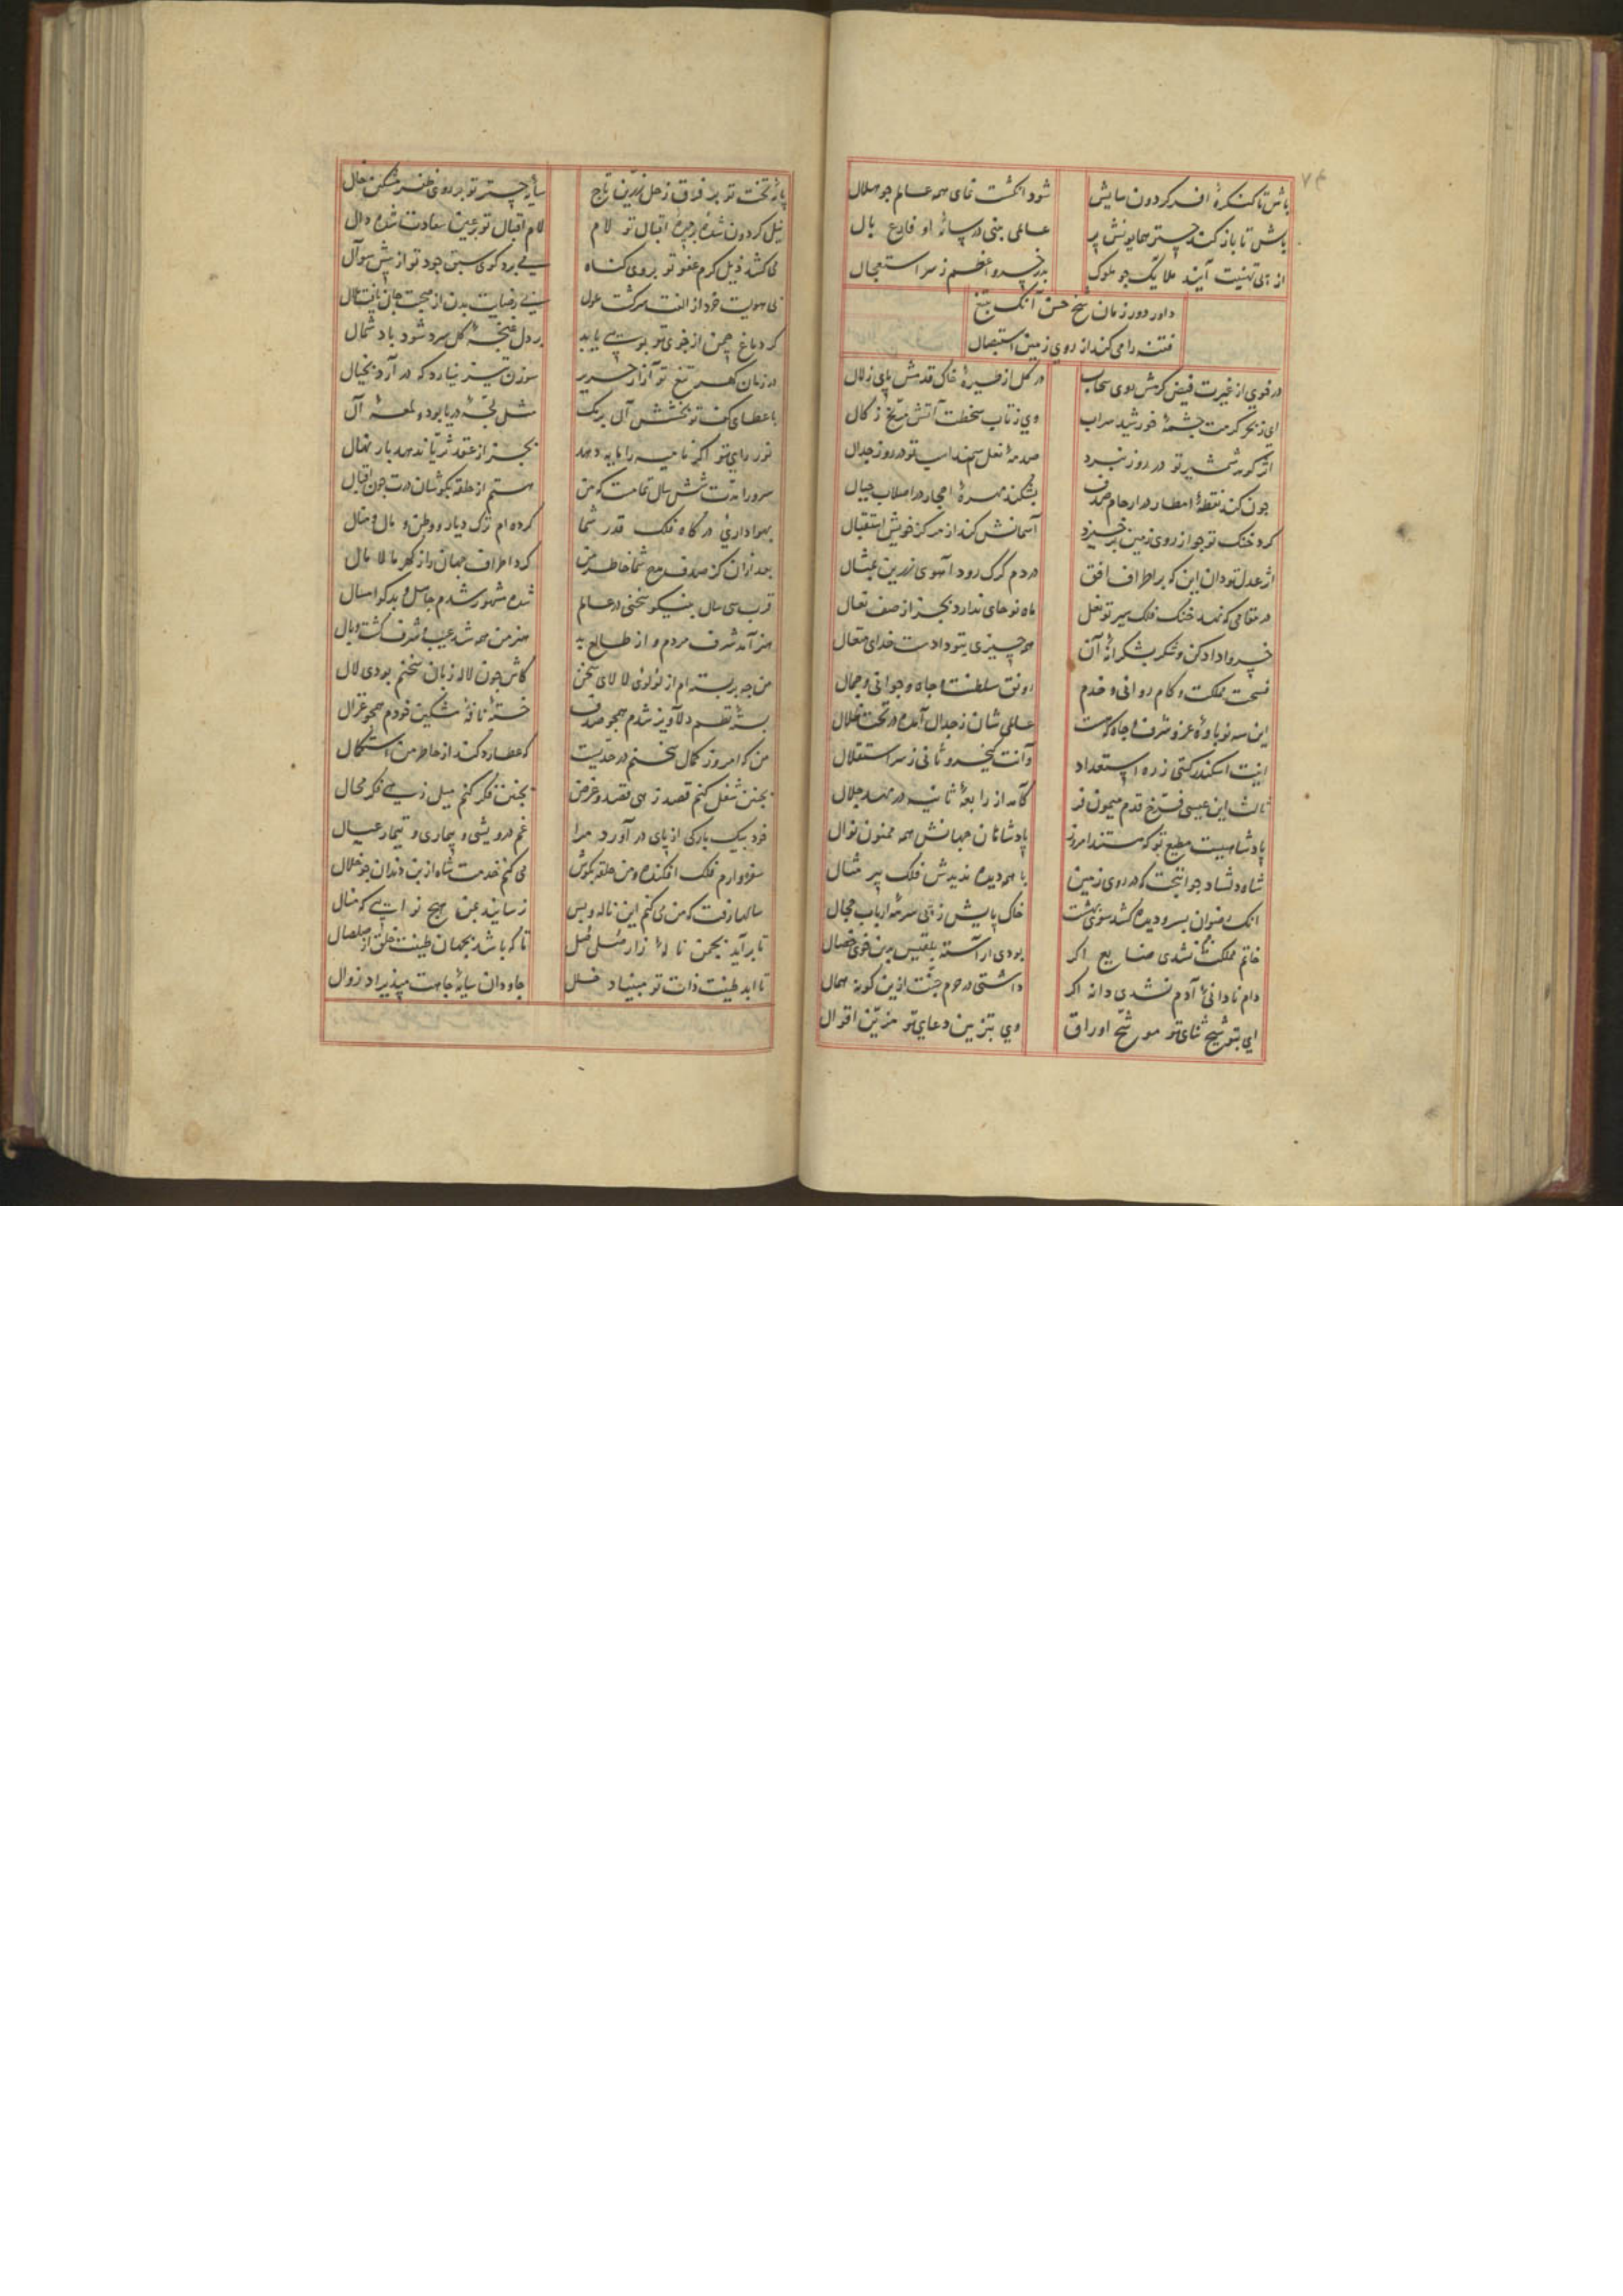 ۷۴
باش تا کنکرهٔ افسر کردون سایش شود انکشت نمای همه عالم جو هلال
باش تا باز کند چتر همایونش پر عالمی بینی در سایهٔ او فارغ بال
از پی تهنیت آیند ملایک جو ملوک بدر خسرو اعظم ز سر استعجال
داور دور زمان شیخ حسن آنک بتیغ
فتنه را می کند از روی زمین استیصال
در خوی از غیرت فیض کرمش روی سحاب در کل از طیرهٔ خاک قدمش پای زلال
ای ز بحر کرمت چشمهٔ خورشید سراب وی ز تاب سخطت آتش مریخ زکال
اثر کوب شمشیر تو در روز نبرد صدمهٔ نعل سمند اسب تو در روز جدال
جون کند نقطهٔ امطار در ارحام صدف بشکند مهرهٔ احجار در اصلاب جبال
کرد خنک تو جو از روی زمین برخیزد آسمانش کند از مرکز خویش استقبال
اثر عدل تو دان این که بر اطراف افق در دم کرک رود آهوی زرین تمثال
در مقامی که نهد خنک فلک سیر تو نعل ماه نو جای ندارد بجز از صف نعال
خسروا داد کن و شکر بشکرانهٔ آن هر چیزی بتو دادست خدای متعال
فسحت مملکت و کام روانی و خدم رونق سلطنت و جاه و جوانی و جمال
این سه نوباوهٔ عز و شرف و جاه که هست عالمی شان ز جدال آمده در تحت ظلال
اینت اسکندر کیتی ز ره استعداد وآنت کیخسرو ثانی ز سر استقلال
ثالث این عیسی فرخ قدم میمون فر کآمد از رابعهٔ ثانیه در مهد جلال
پادشاهیست مطیع تو که هستند امروز پادشاهان جهانش همه ممنون نوال
شاه دلشاد جوانبخت که در روی زمین با همه دیده ندیدش فلک پیر مثال
انک رضوان بسر و دیده کشد سوی بهشت خاک پایش ز پی سرمهٔ ارباب حجال
خاتم مملکت نشدی ضایع اکر بودی آراسته بلقیس بدین خوی خصال
دام نادانیٔ آدم نشدی دانه اکر داشتی در حرم جنت ازین کونه همال
ای بتوشیح ثنای تو موشح اوراق وی بتزیین دعای تو مزین اقوال
پایهٔ تخت تو بر فرق زحل زرین تاج سایهٔ چتر تو بر روی ظفر مشکین خال
نیل کردون شده بر چهرهٔ اقبال تو لام لام اقبال تو بر عین سعادت شده دال
می کشد ذیل کرم عفو تو بر روی کناه می برد کوی سبق جود تو از پیش سوآل
بی هویت خرد از الفت سر کشت ملول بی رضایت بدن از صحبت جان یافت ملال
کر دماغ چمن از خوی تو بوئی یابد بر دل غنچهٔ کل سرد شود باد شمال
در زمان کهر تیغ تو آزار حریر سوزن تیز نیارد که در آرد بخیال
با عطای کف تو بخشش آن بریک مثل لجهٔ دریا بود و لمعهٔ آل
نور رای تو اکر نامیه را مایه دهد بجز از عقد ثریا ندهد بار نهال
سرورا مدت شش سال تمامست که من هستم از حلقه بکوشان درت جون اقبال
بهواداریٔ درکاه فلک قدر شما کرده ام ترک دیار و وطن و مال و منال
بعد ازان کز صدف مدح شما خاطر من کرد اطراف جهان را ز کهر مالامال
قرب سی سال بنیکو سخنی در عالم شده مشهور شدم جاهل و بدکو امسال
هنر آمد شرف مردم و از طالع بد هنر من همه شد عیب و شرف کشت وبال
من جو بر بسته ام از لؤلؤی لالای سخن کاش جون لاله زبان سخنم بودی لال
بستهٔ نظم دلآویز شدم همجو صدف خستهٔ نافهٔ مشکین خودم همجو غزال
من که امروز کمال سخنم در حدیست که عطارد کند از خاطر من استکمال
بجنین شغل کنم قصد زهی قصد و غرض بجنین فکر کنم میل زهی فکر محال
خود بیک بارکی از پای در آورد مرا غم درویشی و بیماری و تیمار عیال
سفره وارم فلک افکنده و من حلقه بکوش می کنم خدمت شاه از بن دندان جو خلال
سالها رفت که من می کنم این ناله و بس نرسانید بمن هیچ نوائی که منال
تا برآید بجمن نالهٔ زار صلصل تا که باشد بجهان طینت خلق از صلصال
تا ابد طینت ذات تو مبیناد خلل جاودان سایهٔ جاهت مپذیراد زوال